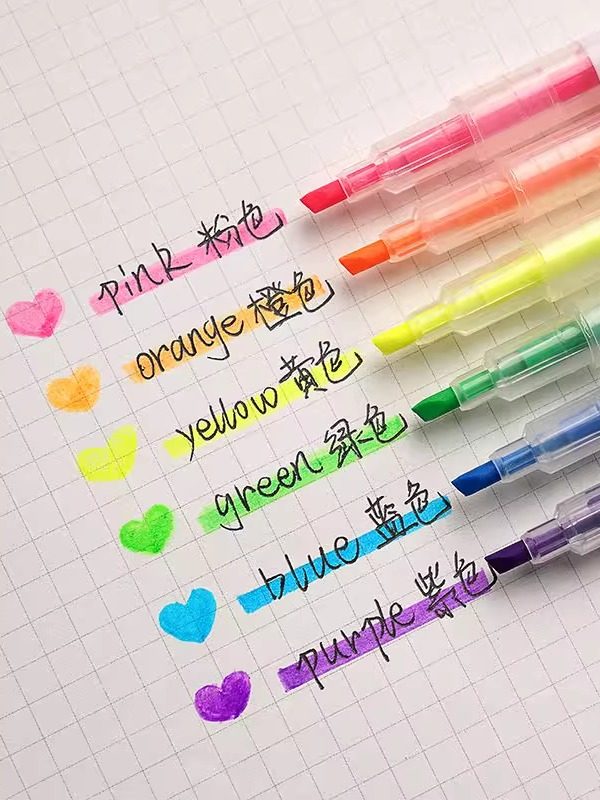 pink 粉色
orange 橙色
yellow 黄色
green 绿色
blue 蓝色
purple 紫色